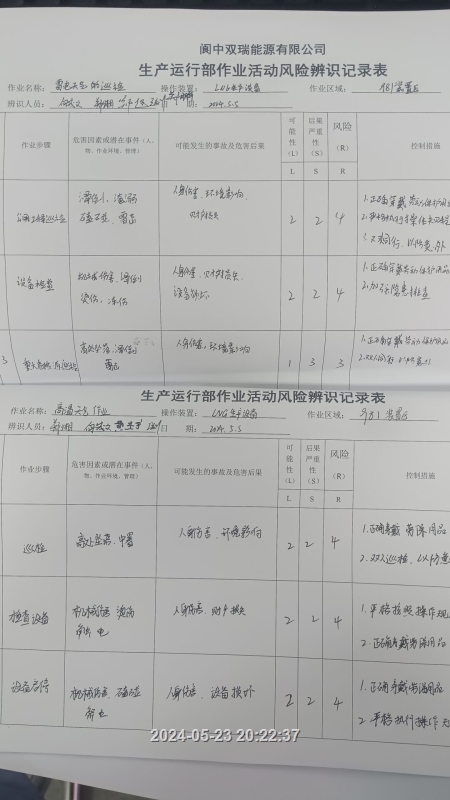 阆中双瑞能源有限公司
生产运行部作业活动风险辨识记录表
作业名称: 雷电天气的巡检 操作装置: LNG生产设备 作业区域: 装置区
辨识人员: 期: 2024.5.5
作业步骤 危害因素或潜在事件(人、物、作业环境、管理) 可能发生的事故及危害后果 可能性(L) 后果严重性(S) 风险(R) 控制措施
L S R
滑倒、 人身伤害、环境影响、 2 2 4 1.正确穿戴劳动保护用品
雷击 财产损失
设备检查 机械伤害、滑倒 人身伤害、财产损失、 2 2 4 1.正确穿戴劳动保护用品
烫伤、冻伤 设备损坏 2.加强隐患排查
3 高处坠落、滑倒 人身伤害、环境影响 1 3 3 1.正确穿戴劳动保护用品
雷击
生产运行部作业活动风险辨识记录表
作业名称: 高温天气作业 操作装置: LNG生产设备 作业区域: 装置区
辨识人员: 日期: 2024.5.5
作业步骤 危害因素或潜在事件(人、物、作业环境、管理) 可能发生的事故及危害后果 可能性(L) 后果严重性(S) 风险(R) 控制措施
L S R
巡检 高处坠落、中暑 人身伤害、环境影响 2 2 4 1.正确穿戴劳保用品
2.双人巡检,以防意
检查设备 机械伤害 烫伤 人身伤害、财产损失 2 2 4 1.严格按照操作规
触电 2.正确穿戴劳保用品
设备启停 机械伤害、 人身伤害、设备损坏 2 2 4 1.正确穿戴劳保用品
触电 2.严格执行操作规
2024-05-23 20:22:37